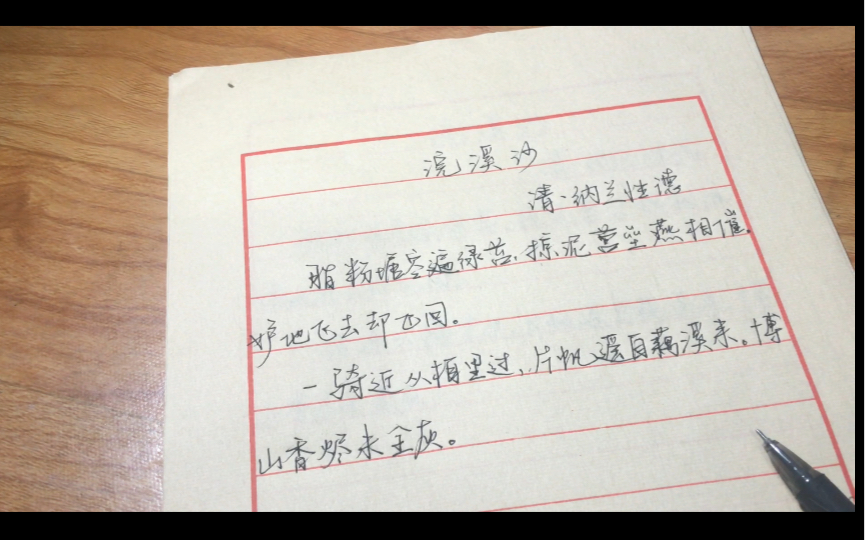 浣溪沙
清·纳兰性德
脂粉塘空遍绿苔,掠泥营垒燕相催。
妒他飞去却飞回。
一骑近从梅里过,片帆遥自藕溪来。博
山香烬未全灰。